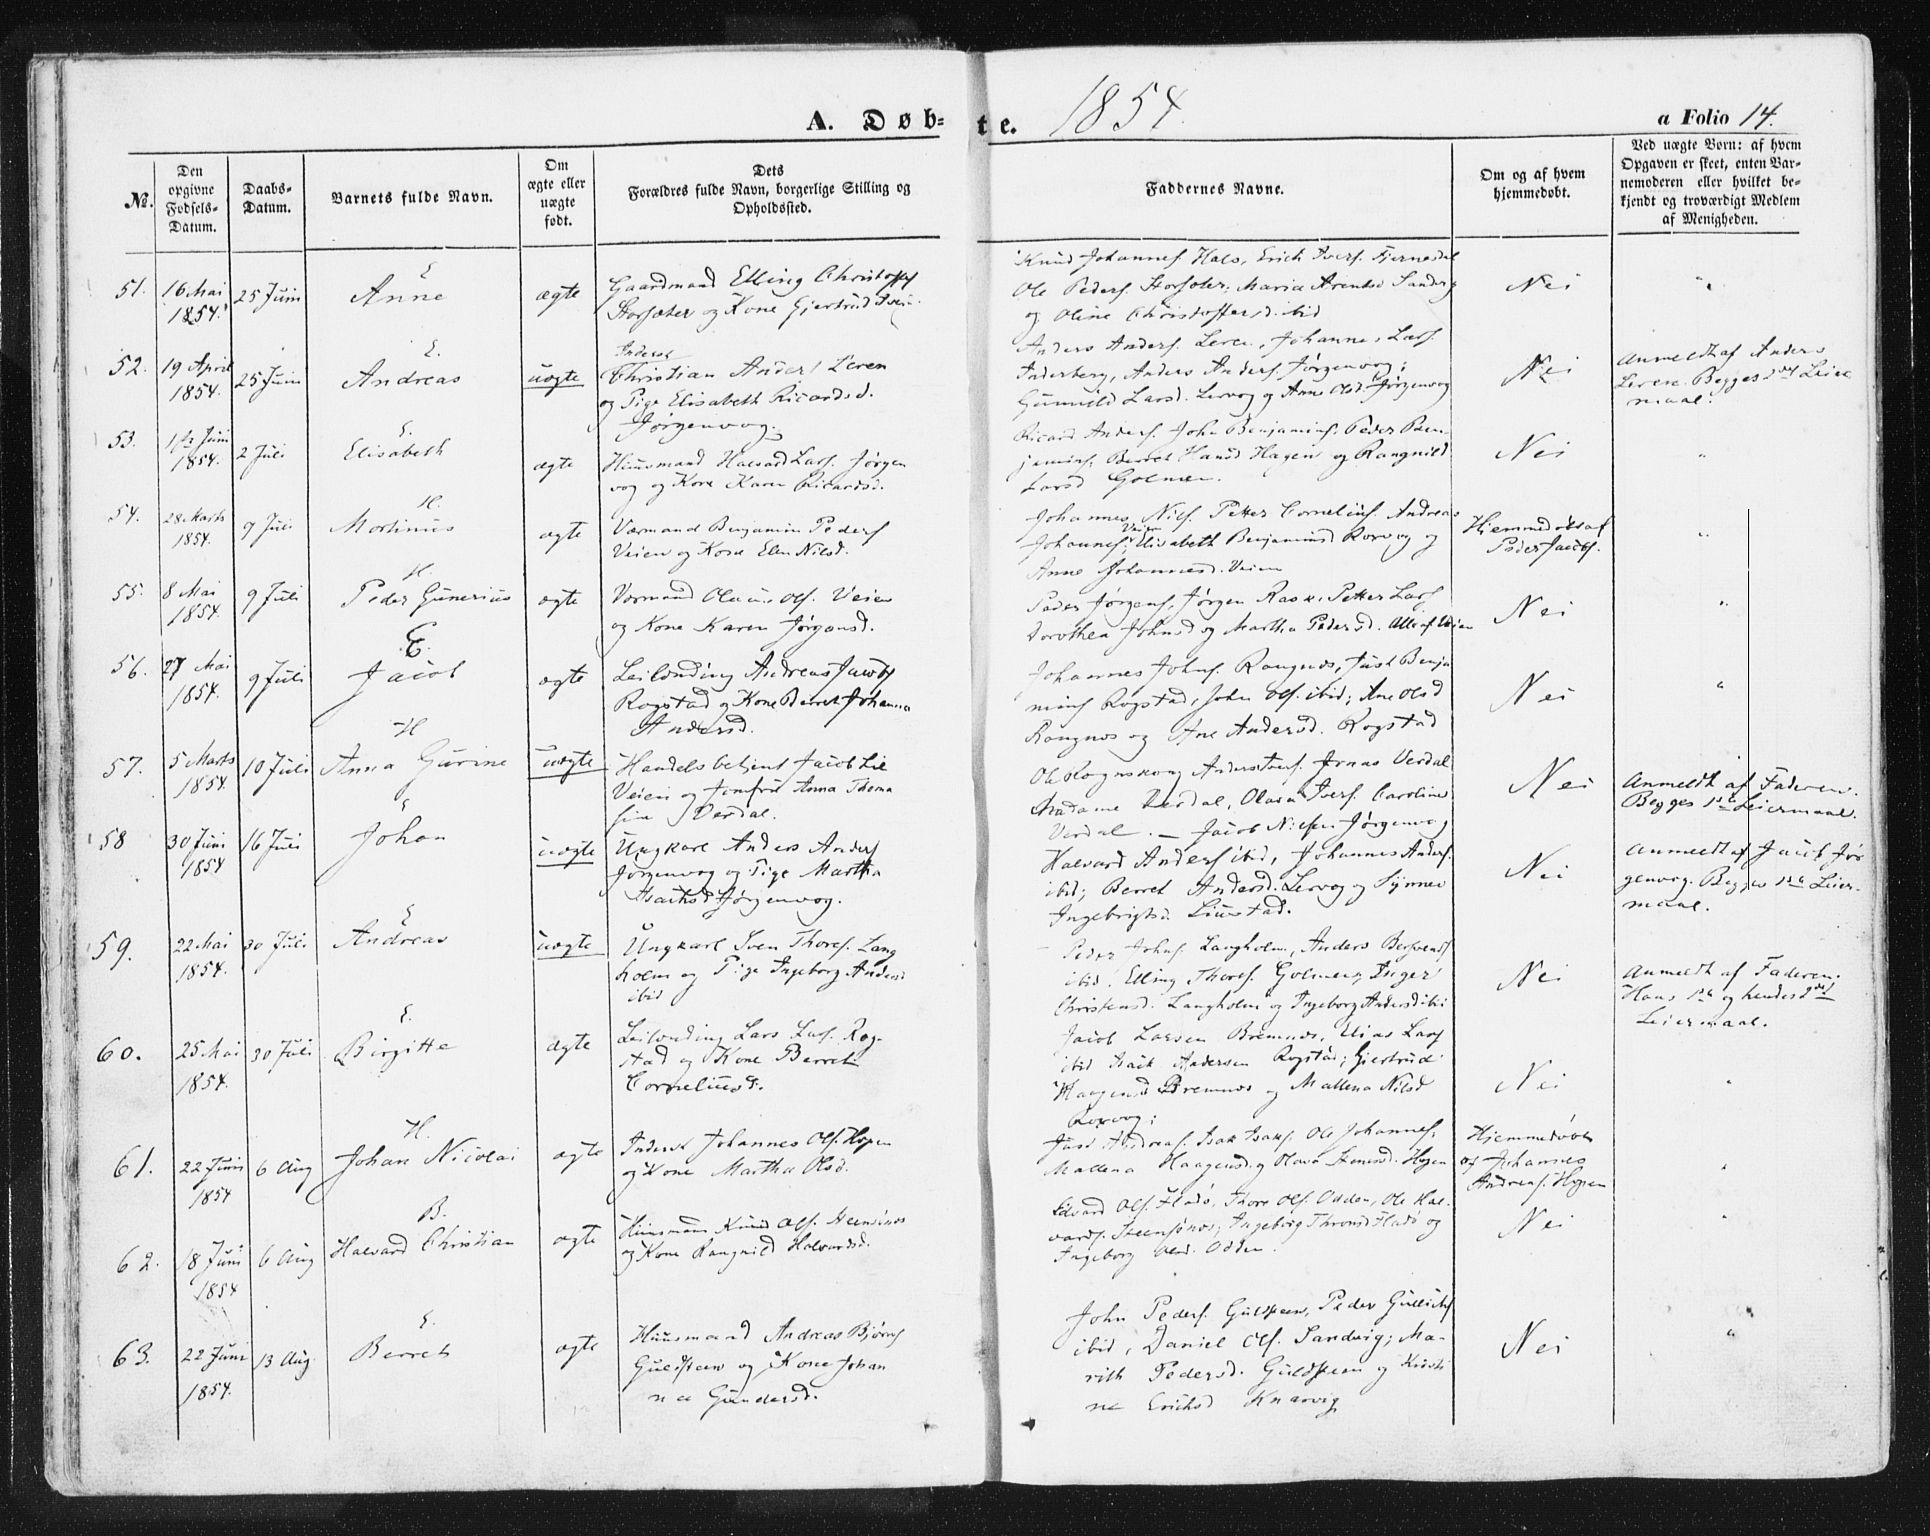 A. Døb-te. 1854.
a Folio 14.
No.
Den opgivne Fødsels-Datum.
Daabs-Datum.
Barnets fulde Navn.
Om ægte eller uægte født.
Dets Forældres fulde Navn, borgerlige Stilling og Opholdssted.
Faddernes Navne.
Om og af hvem hjemmedøbt.
Ved uægte Børn: af hvem Opgaven er skeet, enten Barnemoderen eller hvilket bekjendt og troværdigt Medlem af Menigheden.
51. 16 Mai 1854. 25 Juni E. Anne ægte
Gaardmand Elling Christoffs
Storsæter og Kone Gjertrud
Knud Johannes. Hals, Erich Ivers.
Ole Peders. Storsæter; Maria Arentsd Sandvig
og Oline Christoffersd. ibid
Nei "
52. 19 April 1854. 25 Juni E. Andreas uægte
Inderst
Christian Anders. Leren
og Pige Elisabeth Ricardsd.
Jørgenvog.
Anders Anders. Leren, Johannes Lars.
Inderberg, Anders Anders. Jørgenvog;
Gunnild Larsd. Lervog og Anne Olsd Jørgenvog
Nei
Anmeldt af Anders
Leren. Begges 2det Leier
maal.
53. 1ste Juni 1854. 2 Juli E. Elisabeth ægte
Huusmand Halvard Lars. Jørgen
vog og Kone Karen Ricardsd.
Ricard Anders. John Benjamins. Peder Ben
jamins. Berret Hansd Hagen og Rangnild
Larsd Golmen.
Nei "
54. 28 Marts 1854. 9 Juli H. Mortinus ægte
Værmand Benjamin Peders
Veien og Kone Elen Nilsd.
Johannes Nils. Petter Cornelius. Andreas
Johannes. Veien; Elisabeth Benjaminsd Rorvog og
Anne Johannesd. Veien
Hjemmedøbt af
Peder Jacobs.
"
55. 8 Mai 1854. 9 Juli H. Peder Gunerius ægte
Værmand Olaus Ols. Veien
og Kone Karen Jørgensd.
Peder Jørgens, Jørgen Rask, Petter Lars
Dorothea Johnsd og Martha Pedersd. Alle af Veien
Nei "
56. 27 Mai 1854. 9 Juli E. Jacob ægte
Leilending Andreas Jacobs
Rogstad og Kone Berret Johanna
Andersd.
Johannes Johns. Rangnos, Just Benja
mins Rogstad, John Ols. ibid; Ane Olsd
Rangnos og Ane Andersd. Rogstad
Nei "
57. 5 Marts 1854. 10 Juli H Anna Gurine uægte
Handelsbetjent Jacob Lie
Veien og Jomfru Anna Thoma
sine Verdal.
Ole Rognskoug Anders Ivers. Jonas Verdal
Madame Verdal, Olava Ivers. Caroline
Verdal. — Jacob Niels. Jørgenvog
Nei
Anmeldt af Faderen.
Begges 1ste Leiermaal.
58 30 Juni 1854 16 Juli E Johan uægte
Ungkarl Anders Anders
Jørgenvog og Pige Martha
Isachsd Jørgenvog.
Halvard Anders ibid, Johannes Anders.
ibid; Berret Andersd. Lervog og Synnev
Ingebrigtsd. Liustad.
Nei
Anmeldt af Jacob Jør
genvog. Begges 1ste Leier-
maal.
59. 22 Mai 1854. 30 Juli E Andreas uægte
Ungkarl Sven Thores. Lang
holm og Pige Ingeborg Andersd
ibid
Peder Johns. Langholm, Anders Bersvends
ibid; Elling Thores. Golmen; Inger
Christensd. Langholm og Ingeborg Andersd ibi
Nei
Anmeldt af Faderen.
Hans 1ste og hendes 2det
Leiermaal.
60. 25 Mai 1854. 30 Juli E. Birgitte ægte
Leilending Lars Lars. Rog-
stad og Kone Berret
Corneliusd.
Jacob Larsen Bremnes, Elias Lars
ibid Isack Andersen Rogstad; Giertrud
Haagensd Bremnos og Mallena Nilsd
Rorvog;
Nei "
61. 22 Juni 1854 6 Aug H. Johan Nicolai ægte
Inderst Johannes Ols. Hopen
og Kone Martha Olsd.
Just Andreas. Isak Isaks. Ole Johannes.
Mallena Haagensd. og Olava Hopen
Hjemmedøbt
af Johannes
Andreas. Hopen
"
62. 18 Juni 1854 6 Aug B. Halvard Christian ægte
Huusmand Knud Ols. Steensønos
og Kone Rangnild Halvardsd.
Edvard Ols. Fladø, Thore Ols. Odden, Ole Hal-
vards. Steensønos; Ingeborg Thronsd Fladø og
Ingeborg Olsd. Odden.
Nei "
63. 22 Juni 1854. 13 Aug. E. Berret ægte
Huusmand Andreas Bjørns
Guldsteen og Kone Johan
na Gundersd.
John Peders. Guldsteen, Peder Gulliks
ibid, Daniel Ols. Sandvig; Ma-
rith Pedersd. Guldsteen og Kristi
ne Erichsd Knarvig
Nei "